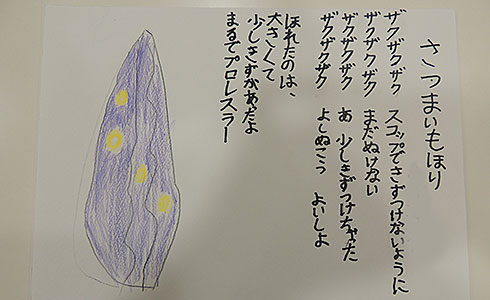 さつまいもほり
ザクザクザク　スコップできずつけないように
ザクザクザク　まだぬけない
ザクザクザク　あ　少しきずつけちゃった
ザクザクザク　よしぬこう　よいしょ
ほれたのは、
大きくて
少しきずがあたよ
まるでプロレスラー